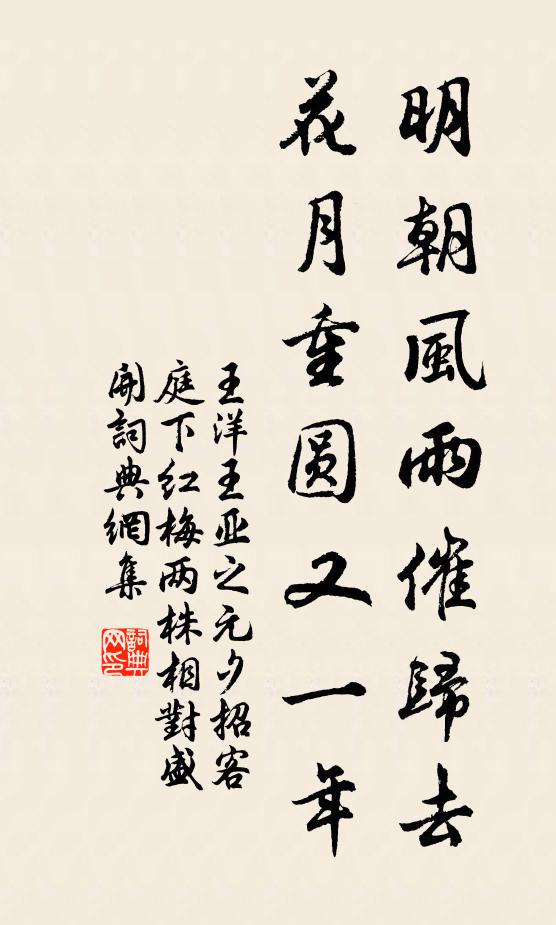 明朝風雨催歸去
花月重圆又一年
王洋王亚之元夕招客
庭下红梅两株相對盛
開詞典網集
詞典網印